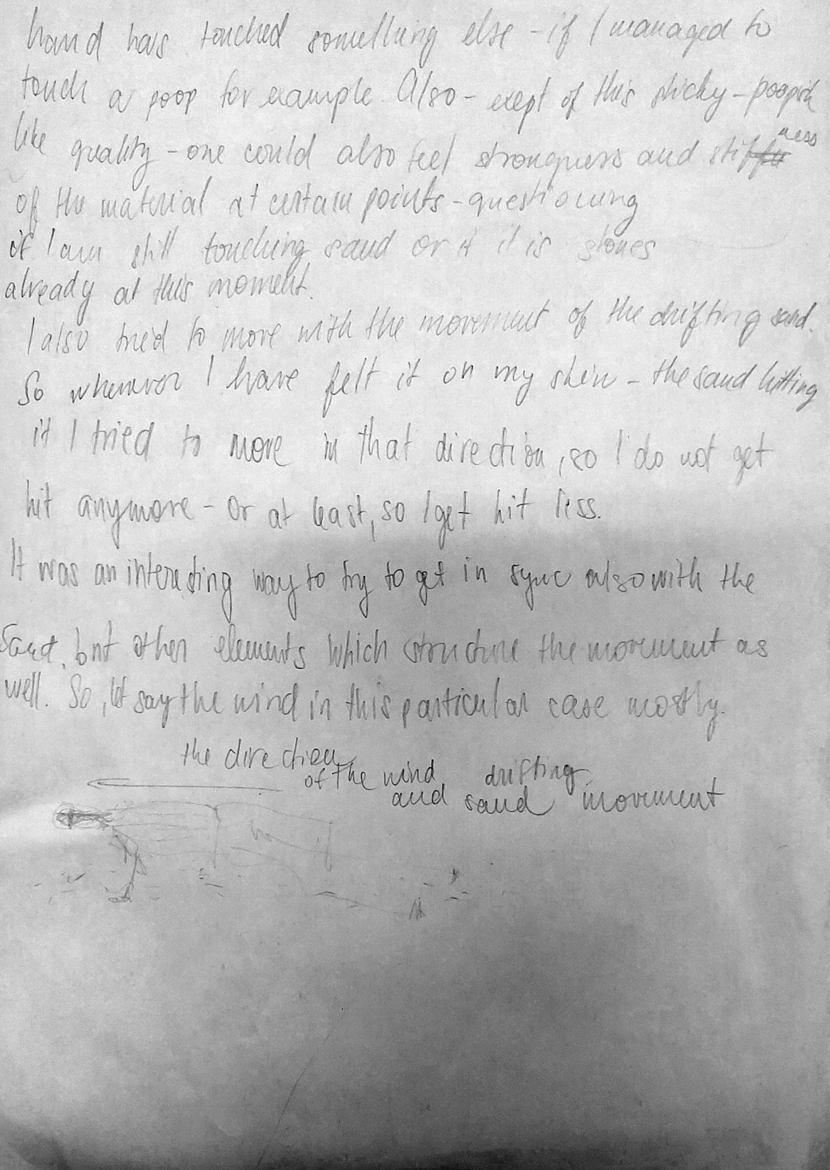 hand has touched something else - if I managed to
touch a poop for example. Also - exept of this sticky - poopish
like quality - one could also feel strongness and stiffness
of the material at certain points - questioning
if I am still touching sand or if it is stones
already at this moment.
I also tried to move with the movement of the drifting sand.
So whenever I have felt it on my skin - the sand hitting
it I tried to move in that direction, so I do not get
hit anymore - or at least, so I get hit less.
It was an interesting way to try to get in sync also with the
sand, but other elements which structure the movement as
well. So, let say the wind in this particular case mostly.
the direction
of the wind drifting
and sand movement